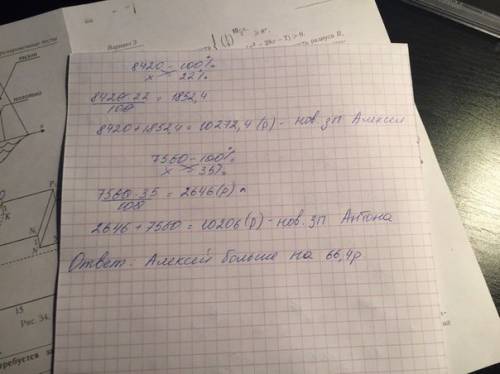 Вариант 3
8420 – 100%
x – 22%
8420·22
100
= 1852,4
8420+1852,4 = 10272,4 (р) – нов. зп Алексея
7560 – 100%
x – 35%
7560·35
100
= 2646(р)
2646 + 7560 = 10206 (р) – нов. зп Антона
Ответ: Алексей больше на 66,4р
15
Рис. 34.